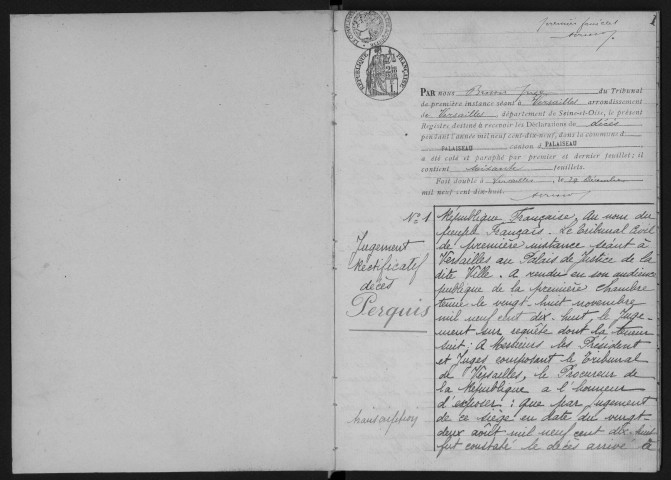 premier feuillet
1
RÉPUBLIQUE FRANÇAISE
PAR nous Juge du Tribunal
de première instance séant à Versailles arrondissement
de Versailles département de Seine-et-Oise, le présent
Registre destiné à recevoir les Déclarations de décès
pendant l'année mil neuf cent dix-neuf, dans la commune d
PALAISEAU canton d PALAISEAU
a été coté et paraphé par premier et dernier feuillet; il
contient soixante feuillets.
Fait double à Versailles, le 29 Décembre
mil neuf cent dix-huit.
No 1
Jugement
Rectificatif
décès
Perquis
transcription
République Française, Au nom du
peuple Français. Le Tribunal Civil
de première instance séant à
Versailles au Palais de Justice de la
dite Ville. A rendu en son audience
publique de la première chambre
tenue le vingt-huit novembre
mil neuf cent dix-huit le Juge-
ment sur requête dont la teneur
suit; A Messieurs les Président
et Juges composant le Tribunal
de Versailles, le Procureur de
la République a l'honneur
d'exposer: que par jugement
de ce siège en date du vingt
deux août mil neuf cent dix-huit
fut constaté le décès arrivé à